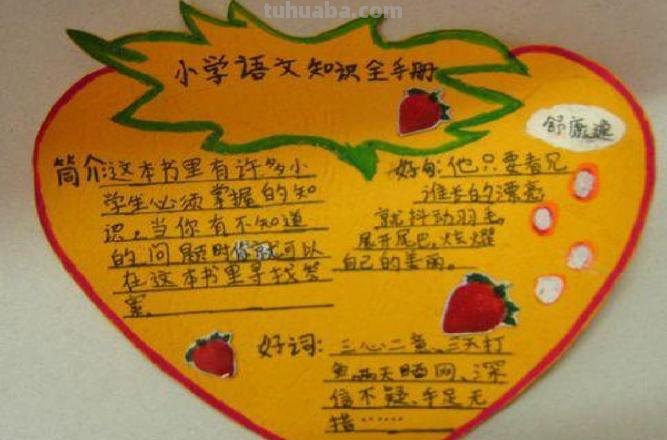 tuhuaba.com
小学语文知识全手册
舒康迪
简介:这本书里有许多小
学生必须掌握的知
识。当你有不知道
的问题时你就可以
在这本书里寻找答
案。
好句:他只要看见
谁长的漂亮
就抖动羽毛,
展开尾巴,炫耀
自己的美丽。
好词:三心二意、三天打
鱼,两天晒网、深
信不疑、手足无
措……